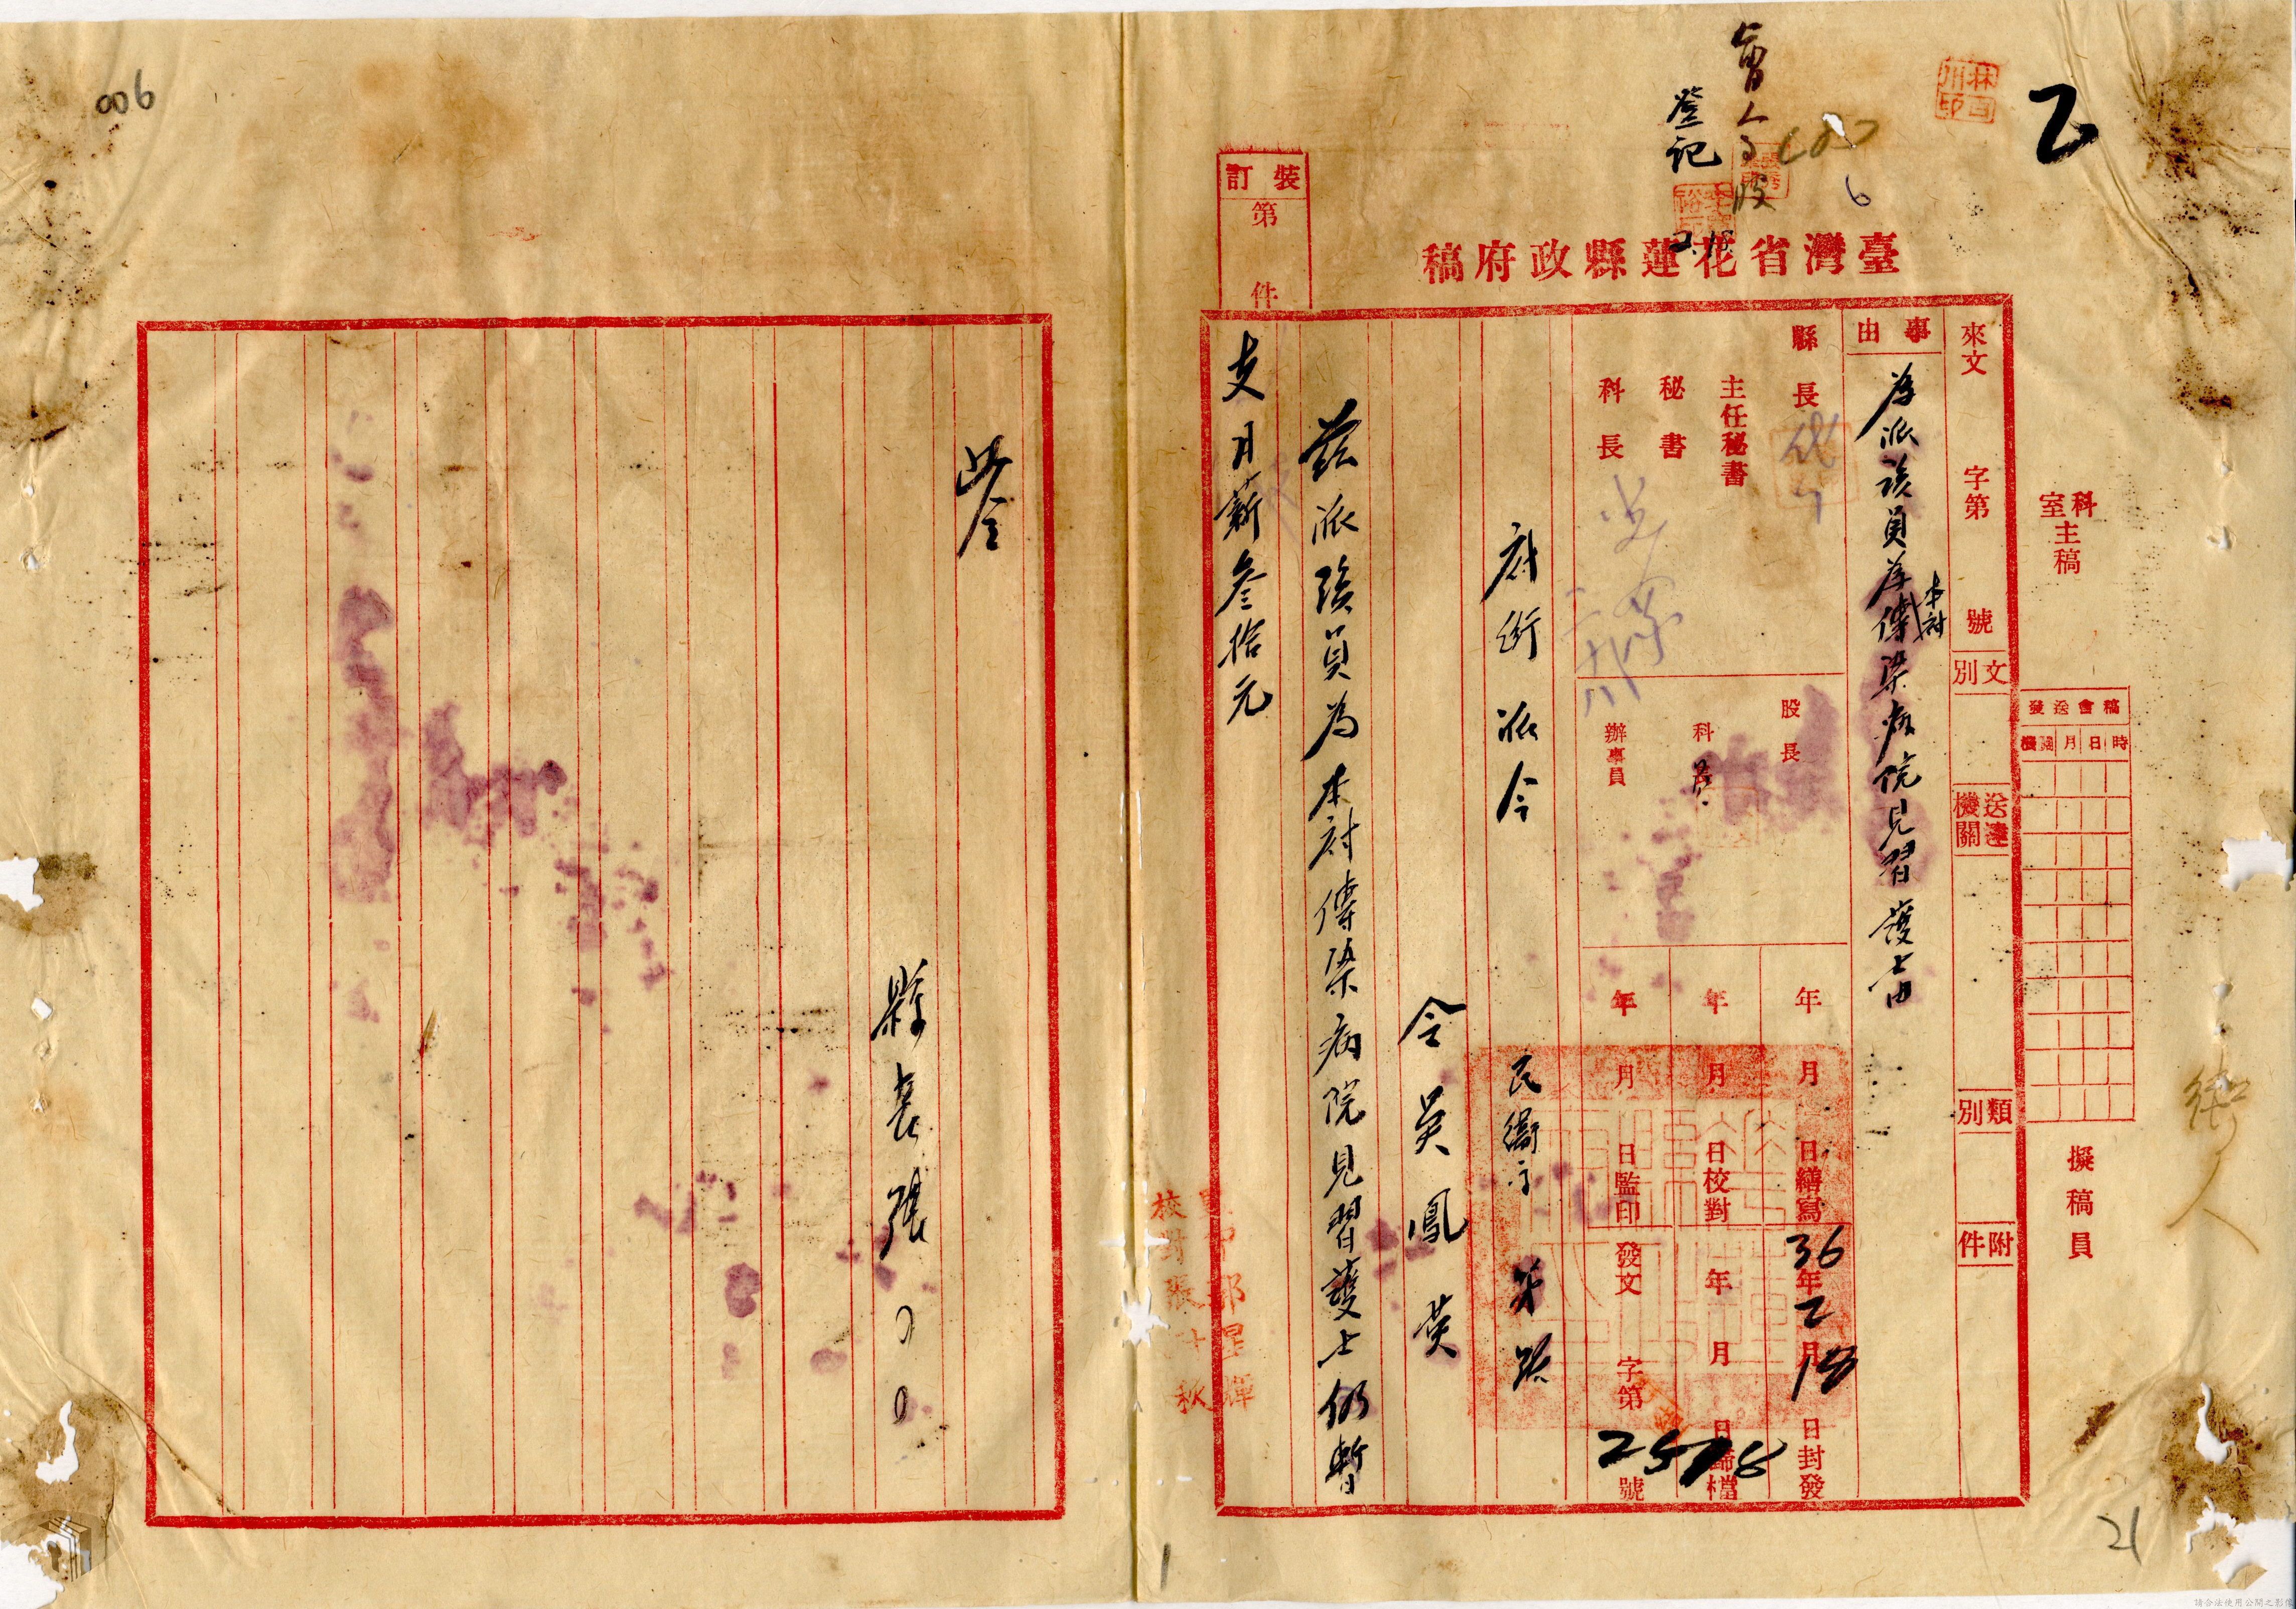 乙
林百川印
會人事股
登記
6
臺灣省花蓮縣政府稿
裝訂
第 件
科室主稿
擬稿員
稿會送發
時日月機關
來文 字第 號
文別
送達機關
類別
附件
事由
為派該員為本府傳染病院見習護士由
縣長
主任秘書
秘書
科長
股長
科員
辦事員
年月日繕寫
年月日校對
年月日監印
36年2月18日封發
年月日歸檔
發文 字第2518號
府銜派令 民衛字第 號
令吳鳳英
茲派該員為本府傳染病院見習護士仍暫
支月薪叁拾元
此令
縣長張〇〇
監印
校對張
006
21
請合法使用公開之影像